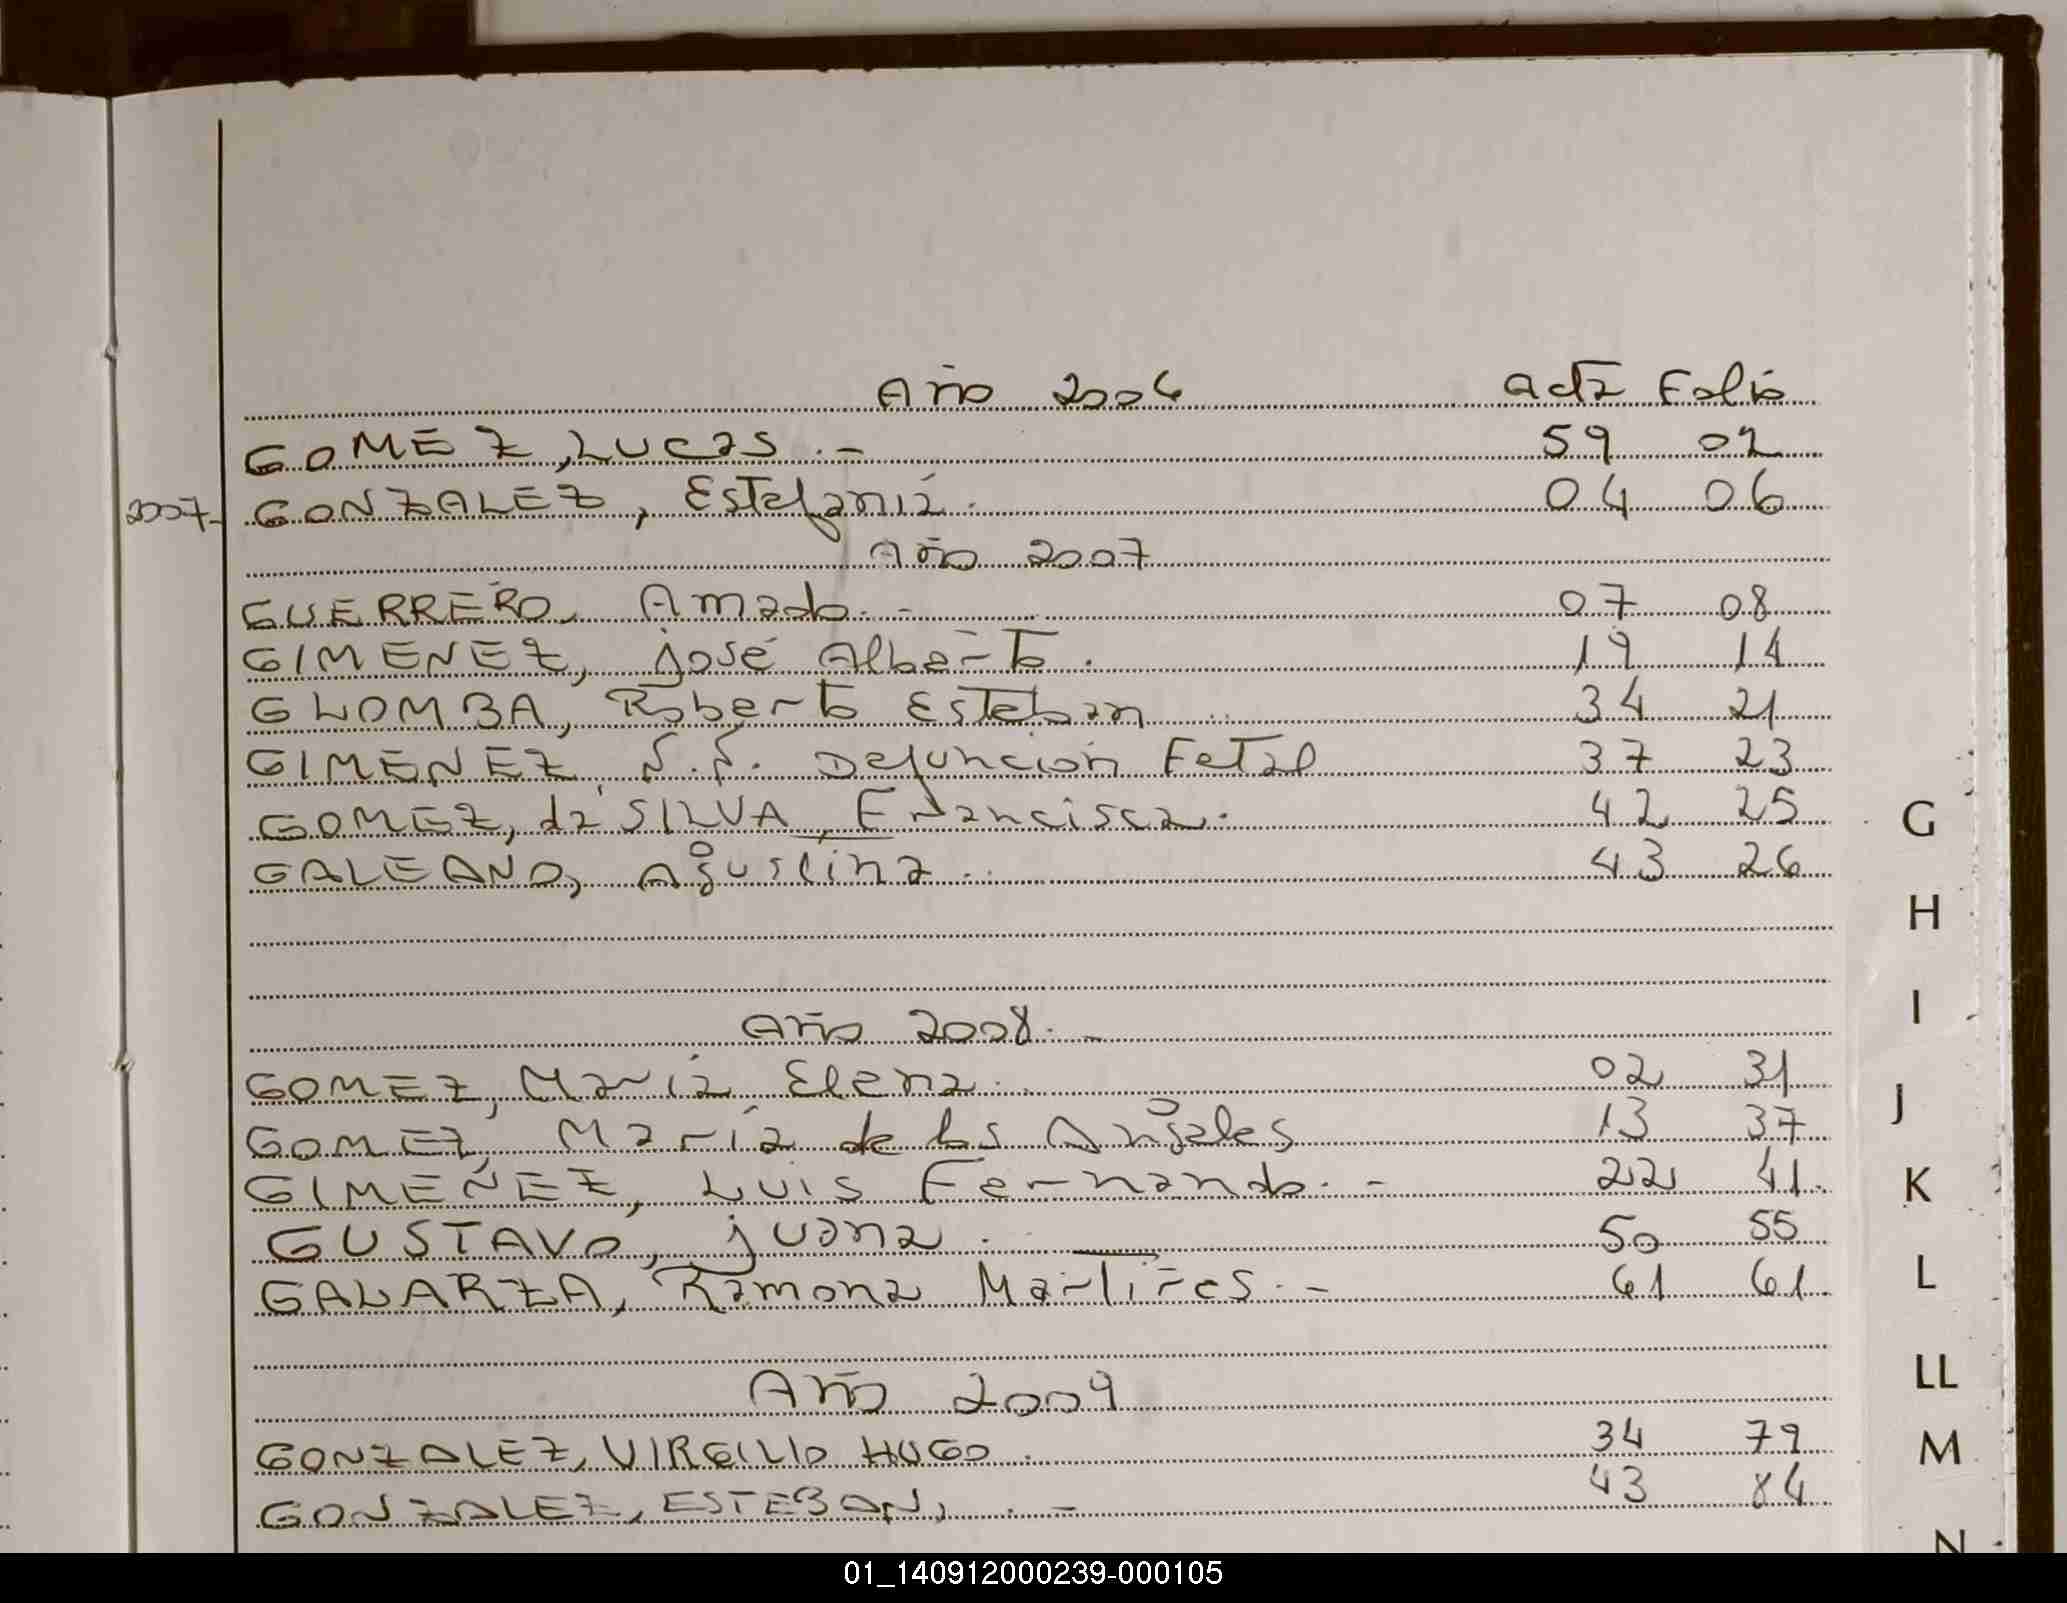 Año 2006 Acta Folio
GOMEZ, Lucas.- 59 02
2007- GONZALEZ, Estefanía. 04 06
Año 2007
GUERRERO, Amado.- 07 08
GIMENEZ, José Alberto. 19 14
GLOMBA, Roberto Esteban 34 21
GIMENEZ, N.N. Defunción Fetal 37 23
GOMEZ, da SILVA, Francisca. 42 25
GALEANO, Agustina. 43 26
G
H
Año 2008.-
I
GOMEZ, María Elena. 02 31
J
GOMEZ, María de los Angeles 13 37
GIMEÑEZ, Luis Fernando.- 22 41
K
GUSTAVO, Juana. 50 55
L
GALARZA, Ramona Martires.- 61 61
LL
Año 2009
GONZALEZ, VIRGILIO HUGO. 34 79
M
GONZALEZ, ESTEBAN, .- 43 84
N
01_140912000239-000105